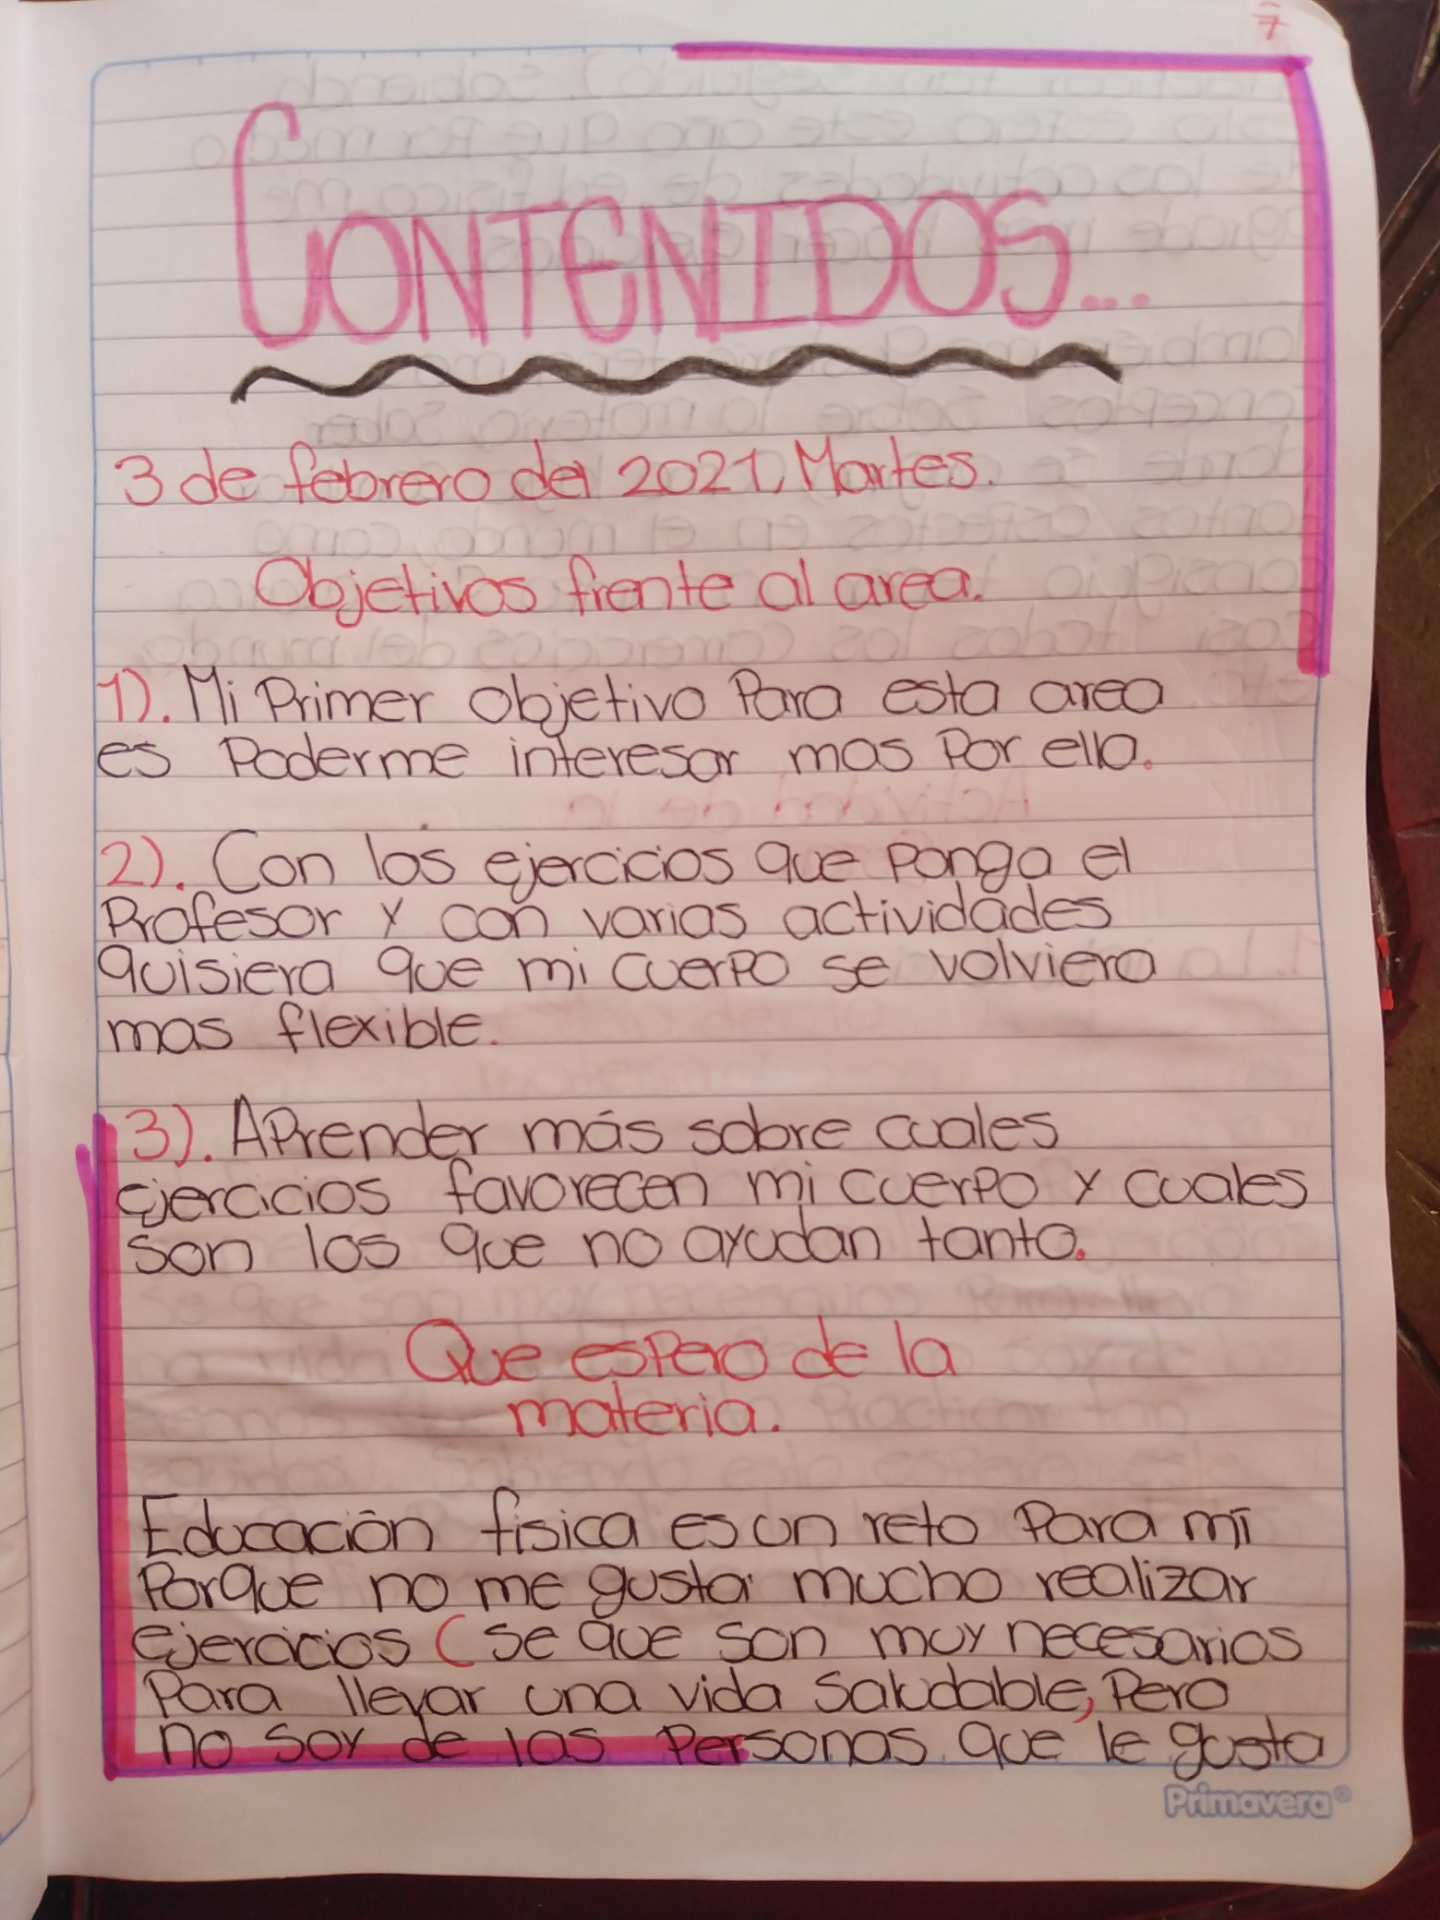 7
CONTENIDOS...
3 de febrero del 2021, Martes.
Objetivos frente al area.
1). Mi Primer objetivo Para esta area
es Poderme interesar mas Por ella.
2). Con los ejercicios que ponga el
Profesor y con varias actividades
quisiera que mi cuerpo se volviera
mas flexible.
3). Aprender más sobre cuales
ejercicios favorecen mi cuerpo y cuales
son los que no ayudan tanto.
Que espero de la
materia.
Educación física es un reto Para mí
Porque no me gusta mucho realizar
ejercicios (se que son muy necesarios
Para llevar una vida Saludable, Pero
no soy de las Personas que le gusta
Primavera®